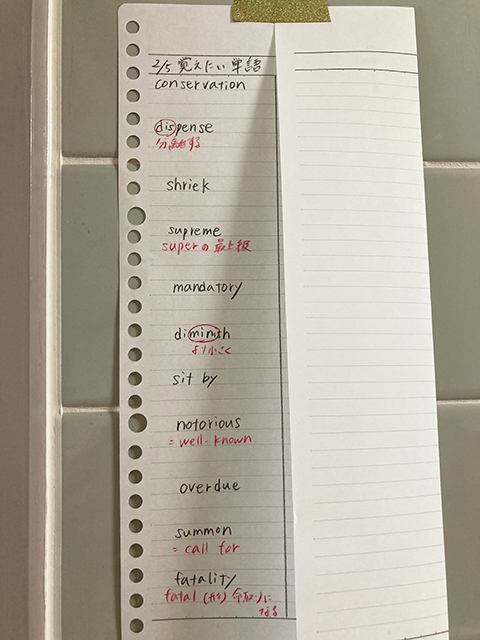 2/5 覚えたい単語
conservation
dispense
分離する
shriek
supreme
superの最上級
mandatory
diminish
より小さく
sit by
notorious
= well-known
overdue
summon
= call for
fatality
fatal (形) 命取りに
なる